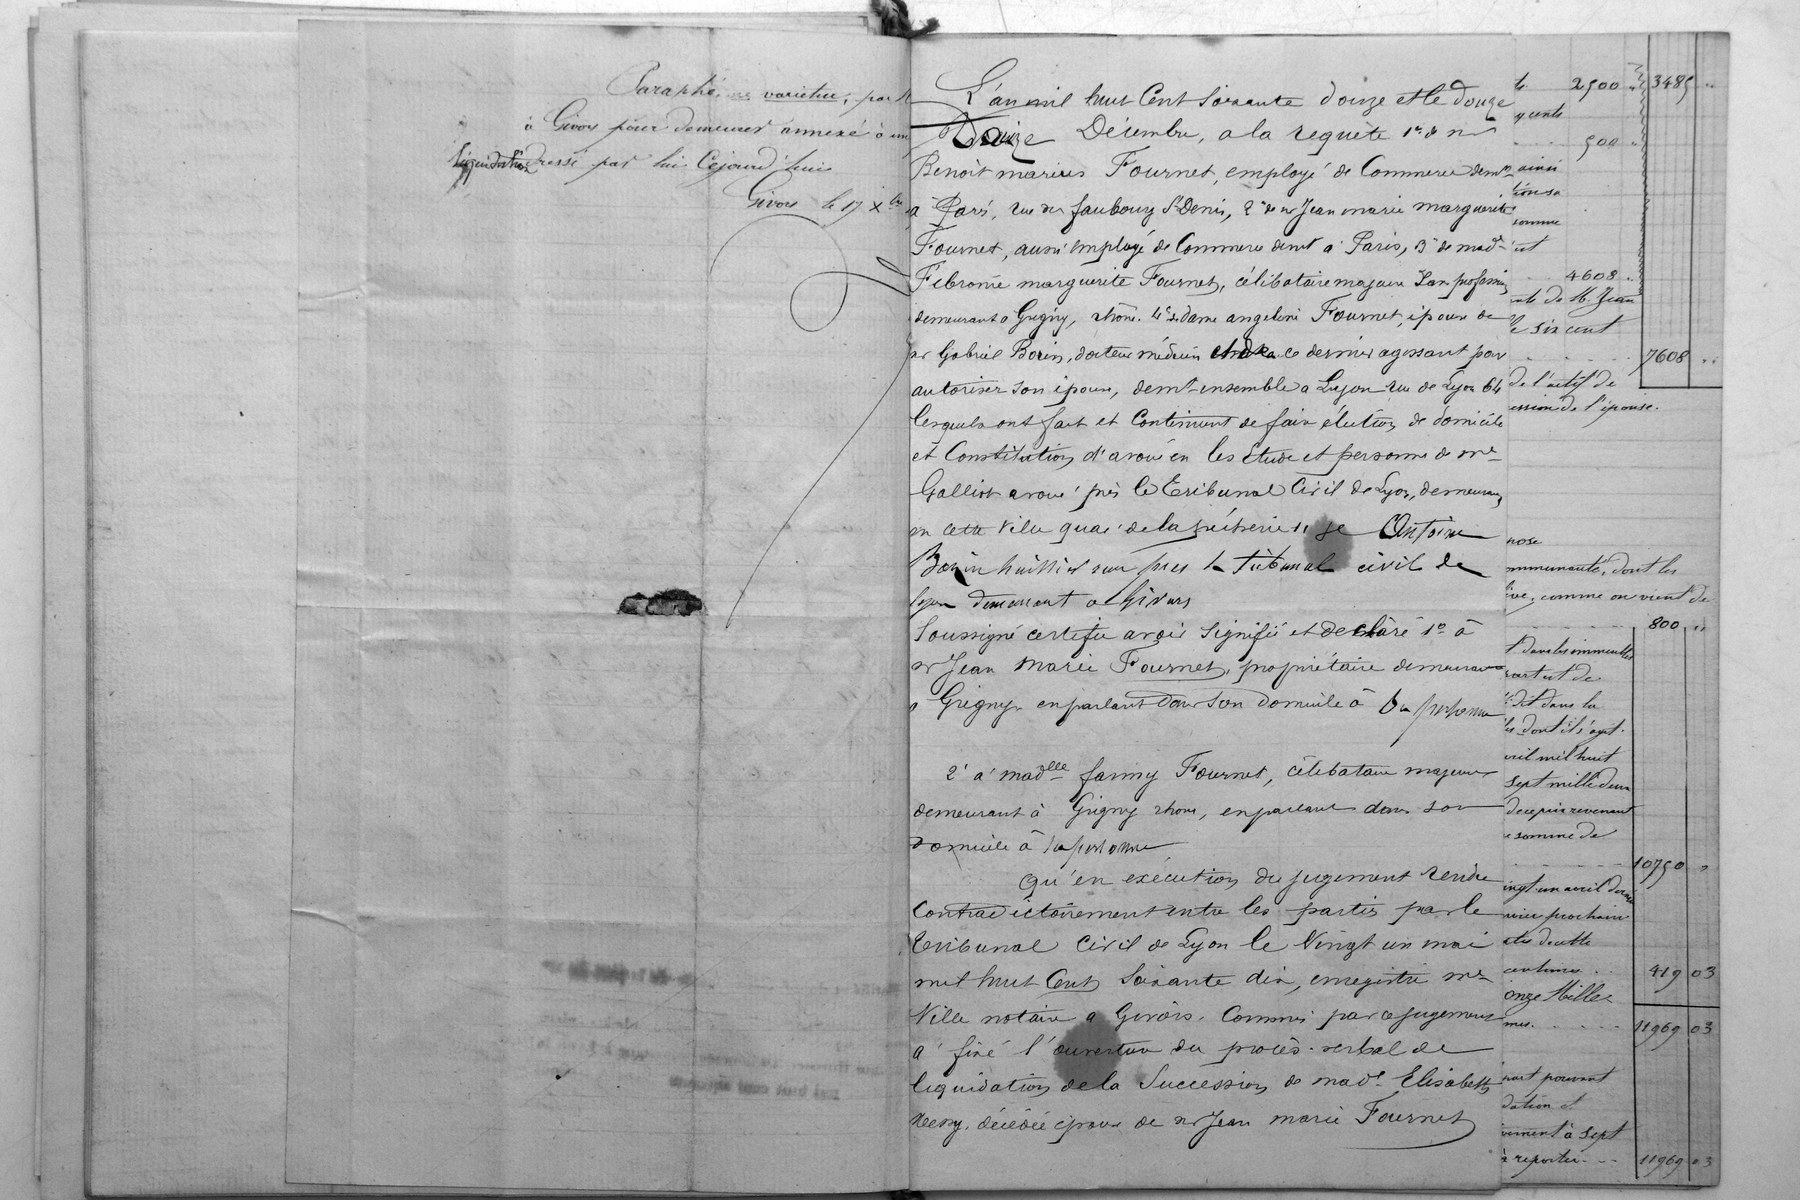 Paraphé ne varietur, par
à Givors pour demeurer annexé à un
liquidation dressé par lui Cejourd'hui
Givors le 17 Xbre
L'an mil huit Cent Soixante douze et le douze
Douze Décembre, a la requete 1° de mr
Benoit marius Fournet, employé de Commerce demt
a Paris, rue du faubourg St Denis, 2° de mr Jean marie marguerite
Fournet, aussi employé de Commerce demt a Paris, 3° de madlle
Fébronie marguerite Fournet, célibataire majeure san profession
demeurant a Grigny, rhône. 4° de dame angeline Fournet, épouse de
mr Gabriel Borin, docteur médecin et de ce dernier agissant pour
autoriser son épouse, demt ensemble a Lyon rue de Lyon 64
lesquels ont fait et Continuent de faire élection de domicile
et Constitution d'avoué en les Etude et personne de me
Galliot avoué près le Tribunal Civil de Lyon, demeurant
en cette Ville quai de la pécherie 11 je Antoine
huissier près le tribunal civil de
Lyon demeurant a Givors
Soussigné certifie avoir Signifié et declaré 1° à
mr Jean Marie Fournet, propriétaire demeurant
a Grigny en parlant dans son domicile à Sa personne
2° a madlle fanny Fournet, célibataire majeure
demeurant à Grigny rhone, en parlant dans son
domicile à sa personne
Qu'en exécution du jugement rendu
Contradictoirement entre les partis par le
Tribunal Civil de Lyon le Vingt un mai
mil huit Cent Soixante dix, enregistré me
Ville notaire a Givors. Commis par ce jugement
a fixé l'ouverture du procès-verbal de
liquidation de la Succession de made Elisabeth
décédée épouse de mr Jean marie Fournet
2500 3485
500
ainsi
somme
4608
de M. Jean
le six cent
7608
de l'actif de
ession de l'épouse.
ommunauté, dont les
ève, comme on vient de
800
t dans les immeubles
dit dans la
les dont il s'agit.
vril mil huit
sept mille deux
revenant
e somme de
10750
ingt un avril dernier
vier prochain
419 03
onze Mille
11969 03
part pouvant
dation et
vement à sept
à reporter 11969 03